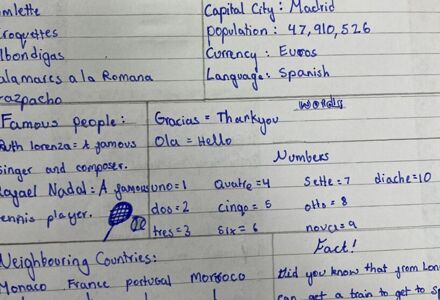 mlette
roquettes
lbondigas
alamares a la Romana
azpacho
Capital City: Madrid
population: 47,910,526
Currency: Euros
Language: Spanish
Famous people:
Ruth Lorenzo= A famous
singer and composer.
Rafael Nadal: A famous
tennis player.
words
Gracias = Thankyou
Ola = Hello
Numbers
uno=1 Quatre=4 Sette=7 diache=10
dos=2 cinqo=5 otto=8
tres=3 six=6 nouca=9
Neighbouring Countries:
Monaco France portugal Morroco
Fact!
Did you know that from Lon
can get a train to get to sp